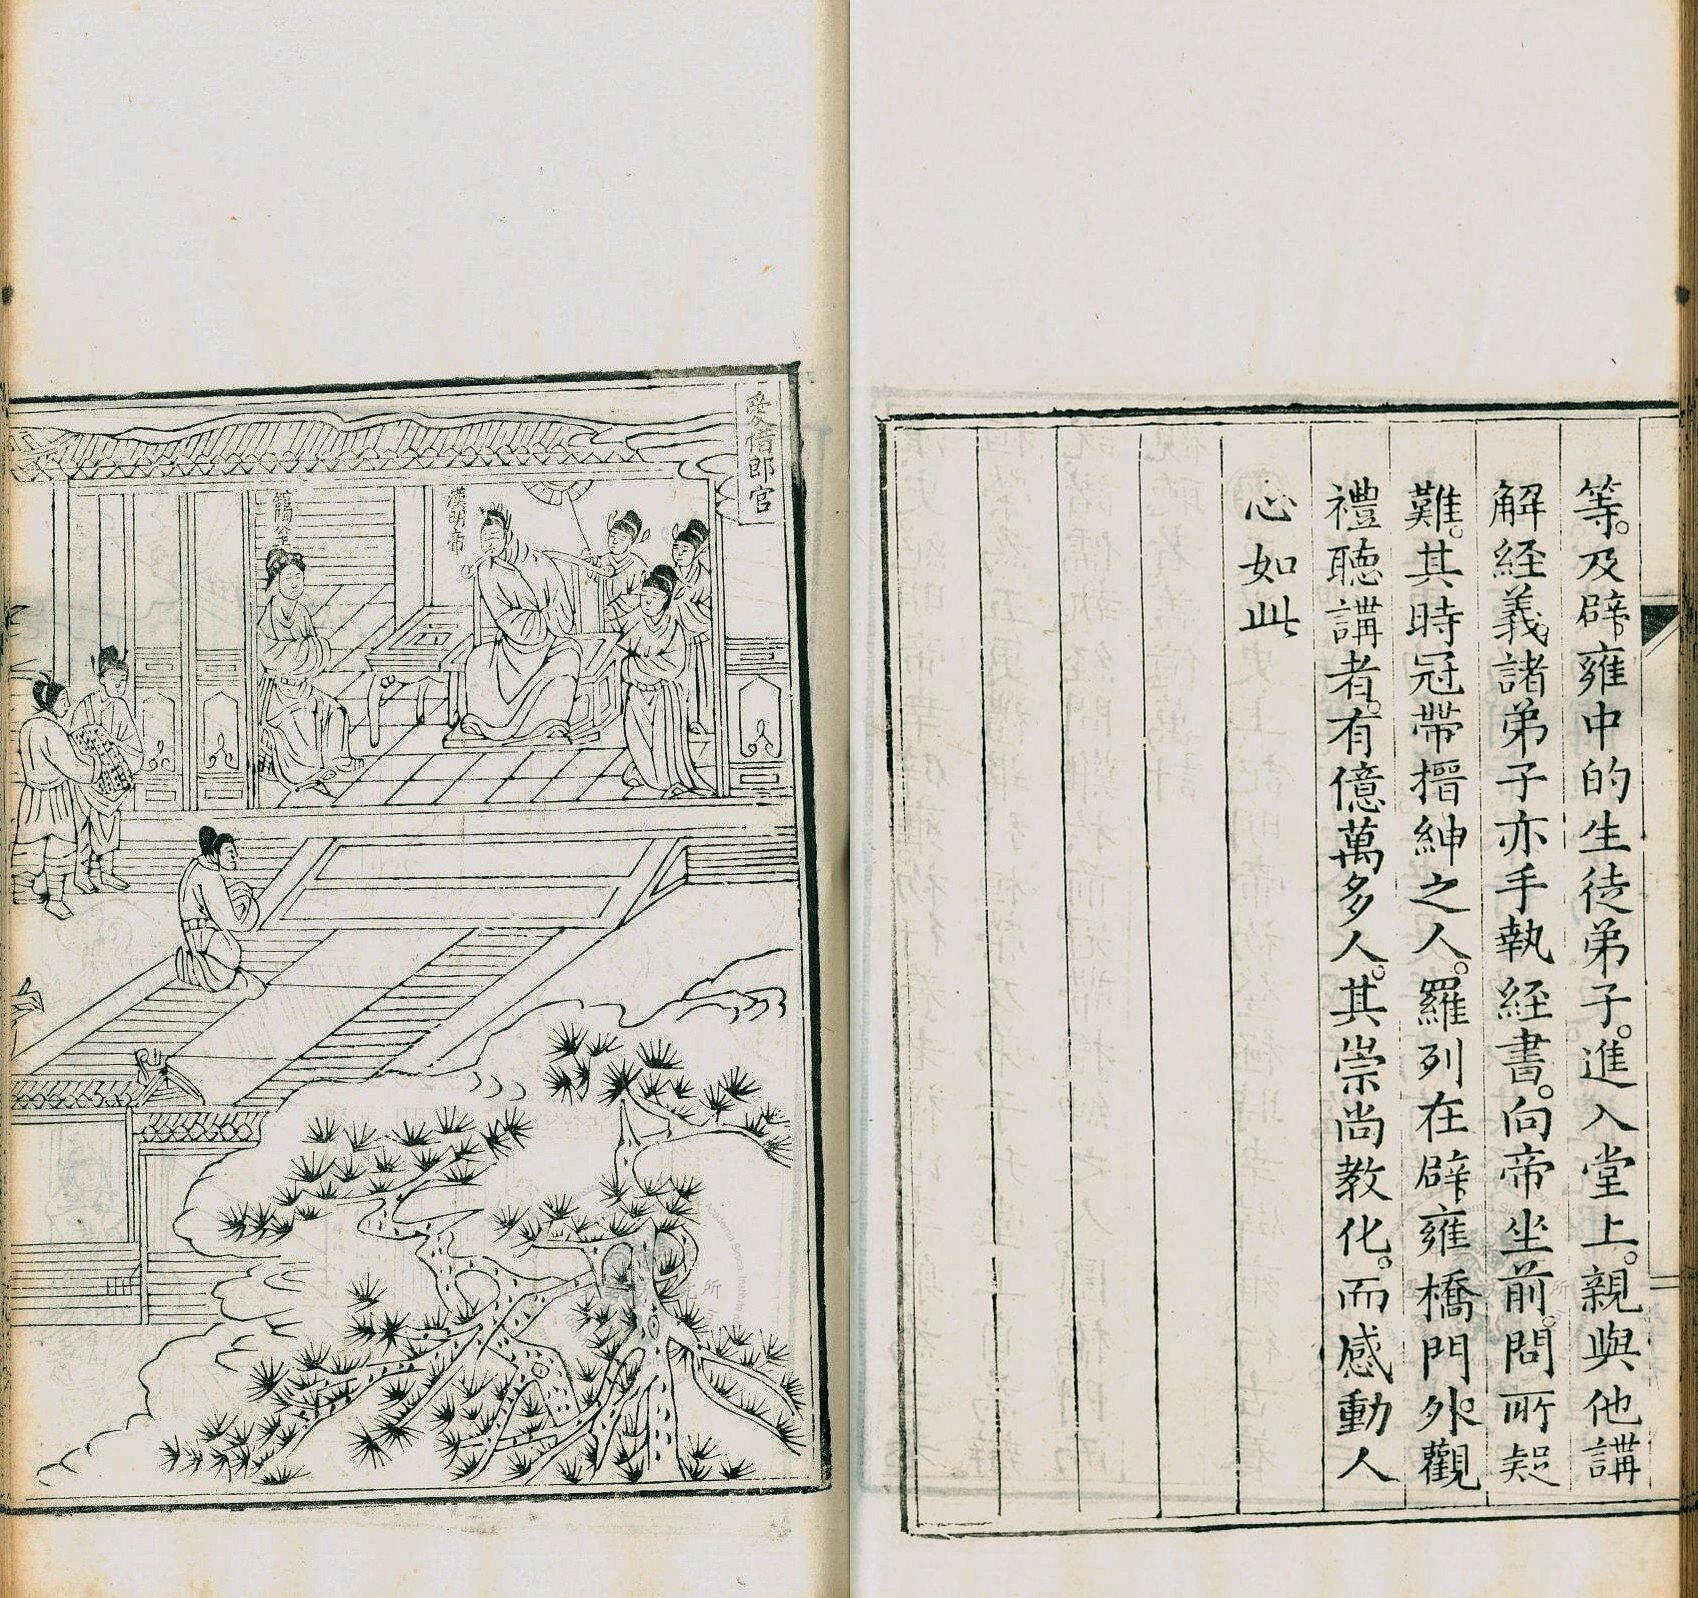 等。及辟雍中的生徒弟子。進入堂上。親與他講
解経義。諸弟子亦手執経書。向帝坐前。問所疑
難。其時冠帶搢紳之人。羅列在辟雍橋門外。觀
禮聽講者。有億萬多人。其崇尚教化。而感動人
心如此
愛惜郎官
漢明帝